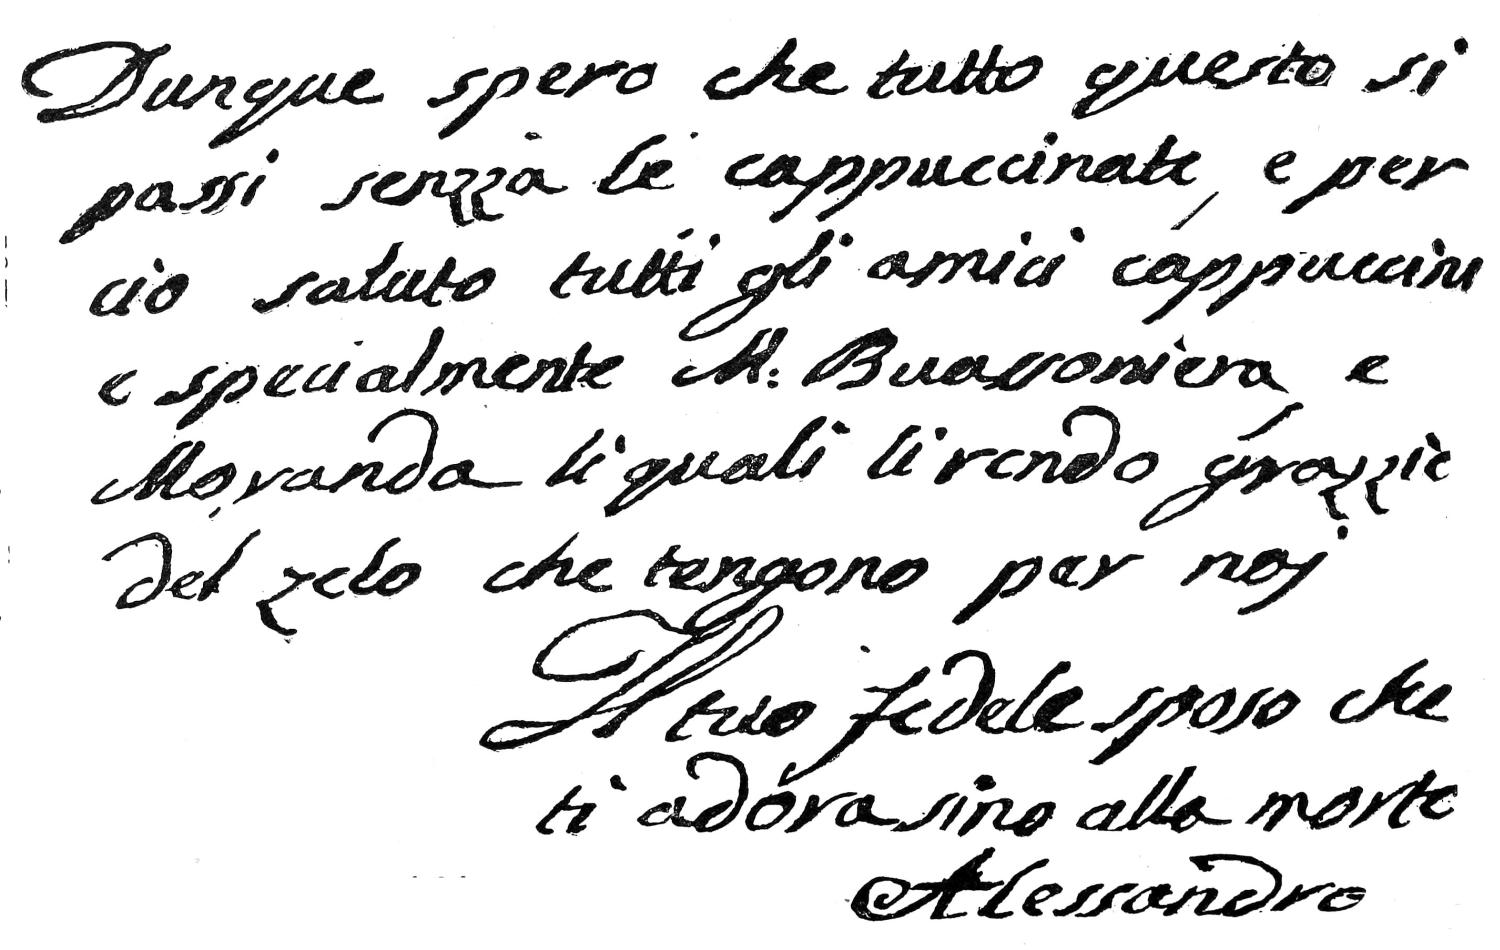 Dunque spero che tutto questo si
passi senzza le cappuccinate, e per
ciò saluto tutti gli amici cappuccini
e specialmente M: Buassoniera e
Moranda li quali li rendo grazzie
del zelo che tengono per noj
Il tuo fedele sposo che
ti adora sino alla morte
Alessandro